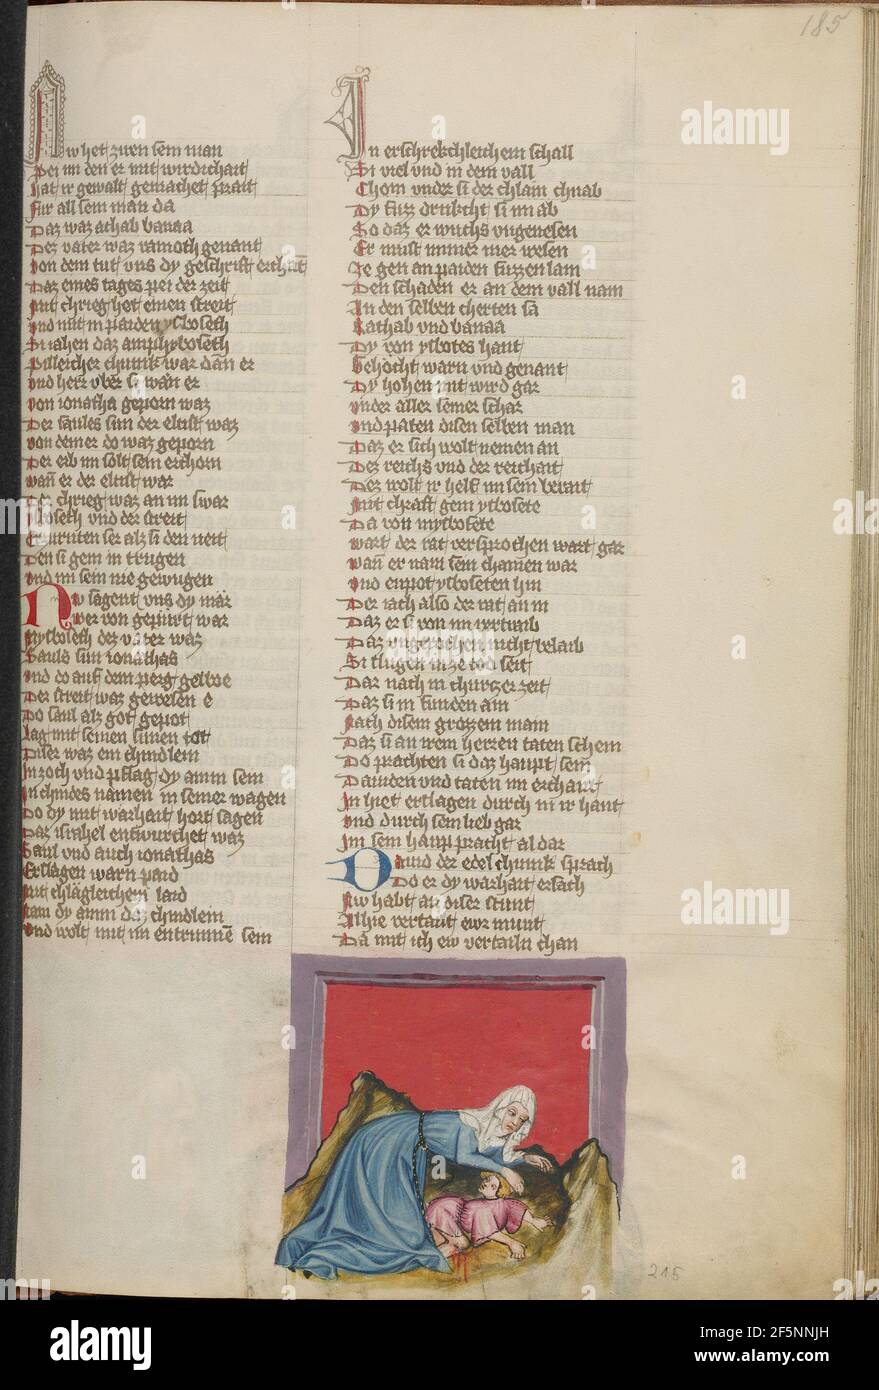 185
Nw het zwen sein man
Pei im den er mit wirdichait
Hat ir gewalt gemachet prait
Fur all sein man da
Daz waz achab banaa
Der vater waz ramoth genant
Von dem tut uns dy geschrift erchant
Daz eines tages pei der zeit
Mit chrieg het einen streit
Und mit in paiden ysboseth
Si iahen daz amphyboseth
Pilleicher chunik war dan er
Und herr uber si wan er
Von ionatha geporn waz
Der saules sun der eltist waz
Von dem er do waz geporn
Der erb im solt sein erchorn
Wan er der eltist war
Der chrieg waz an im swar
Isboseth und der streit
Den si gein in trugen
Und im sein nie gewugen
Nw sagent uns dy mär
Wer von gepurt war
Mysboseth der vater waz
Sauls sun ionathas
Und do auf dem perg gelboe
Der streit waz gewesen e
Do saul alz got gepot
Lag mit seinen sunen tot
Diser waz ein chindlein
In zoch und pflag dy amm sein
In chindes namen in seiner wagen
Do dy mit warhait hort sagen
Daz israhel entwurchet waz
Saul und auch ionathas
Erslagen warn paid
Mit chlägleichem laid
Nam dy amm daz chindlein
Und wolt mit im entrinnen sein
In erschrekchleichem schall
Si viel und in dem vall
Chom under si der chlain chnab
Dy fuzz drukcht si im ab
So daz er wuchs ungenesen
Er must immer mer wesen
Je gen an paiden fuzzen lam
Den schaden er an dem vall nam
In den selben cherten sa
Rathab und banaa
Dy von ysbotes haut
Gehocht warn und genant
Dy hohen mit wird gar
Under aller seiner schar
Und paten disen selben man
Daz er sich wolt nemen an
Dez reichs und der reichait
Dez wolt ir helf im sein berait
Mit chraft gein ysbosete
Da von mysbosete
Wart der rat versprochen wart gar
Wan er nam sein chainen war
Und enpot ysboseten hin
Der rach also der rat an in
Daz er si von im vertraib
Daz ungerochen nicht belaib
Si slugen in ze tod seit
Dar nach in churczer zeit
Daz si in funden ain
Nach disem grozzem main
Daz si an irem herzen taten schein
Do prachten si daz haupt sein
Dauiden und taten im erchant
In hiet erslagen durch in ir hant
Und durch sein lieb gar
Im sein haupp pracht al dar
Dauid der edel chunik sprach
Do er dy warhait ersach
Nw habt an diser stunt
Alhie vertailt ewr munt
Da mit ich ew vertailn chan
215
a alamy
alamy
Image ID: 2F5NNJH
www.alamy.com